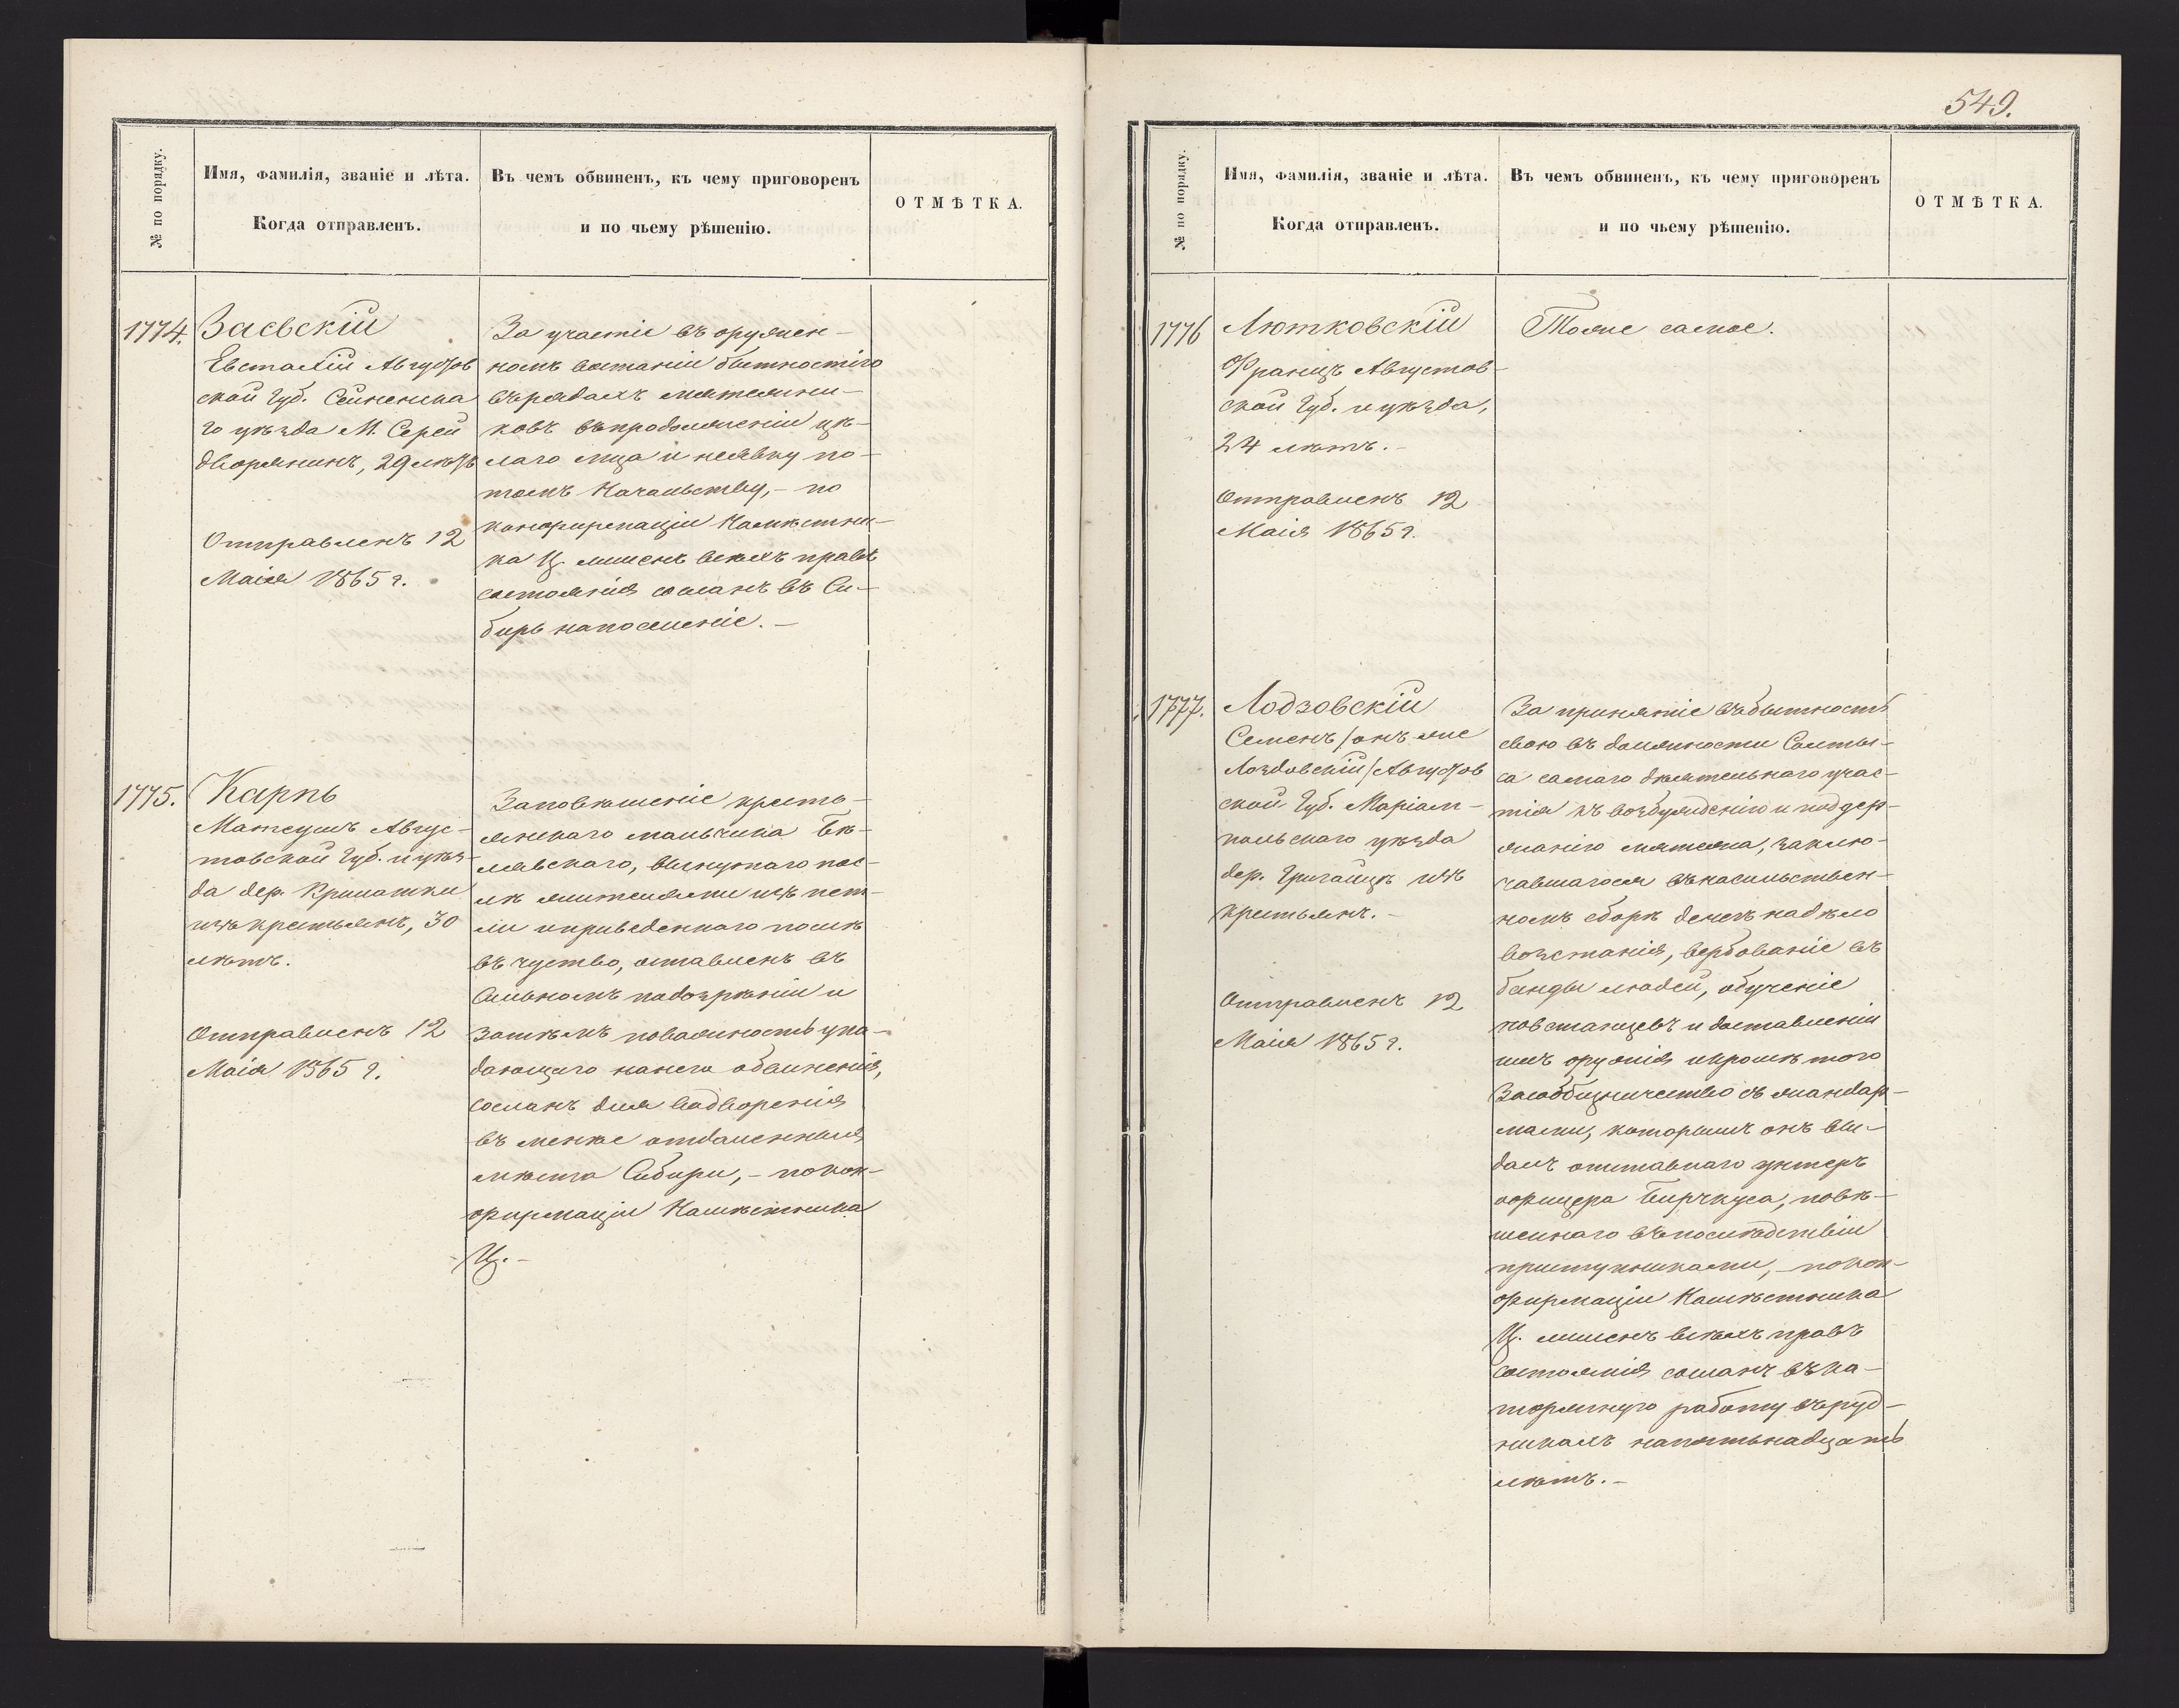 № по порядку.
Имя, фамилія, званіе и лѣта.
Когда отправленъ.
Въ чемъ обвиненъ, къ чему приговоренъ
и по чьему рѣшенію.
ОТМѢТКА.
1774.
Заевскій
Евстафій Августов
ской Губ. Сейненска
го уѣзда М. Серей
дворянинъ, 29 лѣтъ
Отправленъ 12
Маія 1865 г.
За участіе въ оружен-
номъ востаніи бытностію
въ рядахъ мятежни-
ковъ впродолженіи цѣ-
лаго м-ца и неявку по-
томъ Начальству, - по
конфирмаціи Намѣстни-
ка Ц. лишенъ всѣхъ правъ
состоянія сосланъ въ Си-
бирь на поселеніе. -
1775.
Карпь
Матеушъ Авгус-
товской Губ. и уѣз-
да дер.
изъ крестьянъ, 30
лѣтъ.
Отправленъ 12
Маія 1865 г.
За повѣшеніе кресть-
янскаго мальчика Бѣ-
лявскаго, вынутаго пос-
лѣ жителями изъ пет-
ли и приведеннаго послѣ
въ чуство, оставленъ въ
сильномъ подозрѣніи и
затѣмъ по важности упа-
дающаго на него обвиненія,
сосланъ для водворенія
въ менѣе отдаленныя
мѣста Сибири, - по кон-
фирмаціи Намѣстника
Ц. -
549.
№ по порядку.
Имя, фамилія, званіе и лѣта.
Когда отправленъ.
Въ чемъ обвиненъ, къ чему приговоренъ
и по чьему рѣшенію.
ОТМѢТКА.
1776
Лютковскій
Францъ Августов-
ской Губ. и уѣзда,
24 лѣтъ. -
Отправленъ 12
Маія 1865 г.
Тоже самое.
1777.
Лодзовскій
Семенъ /онъ же
Лоздовскій/ Августов
ской Губ. Маріам-
польскаго уѣзда
дер. изъ
крестьянъ. -
Отправленъ 12
Маія 1865 г.
За принятіе въ бытность
свою въ должности Солты-
са самаго дѣятельнаго учас-
тія къ возбужденію и поддер-
жанію мятежа, заклю-
чавшагося въ насильствен-
номъ сборѣ денегъ на дѣло
возстанія, вербованіе въ
банды людей, обученіе
повстанцевъ и доставленіи
имъ оружія и кромѣ того
За сообщничество съ жандар-
мами, которымъ онъ вы-
далъ отставнаго унтеръ
офицера Бирчкуса, повѣ-
шеннаго въ послѣдствіи
приступниками, - по кон-
фирмаціи Намѣстника
Ц. лишенъ всѣхъ правъ
состоянія сосланъ въ ка-
торжную работу въ руд-
никахъ на пятьнадцать
лѣтъ. -